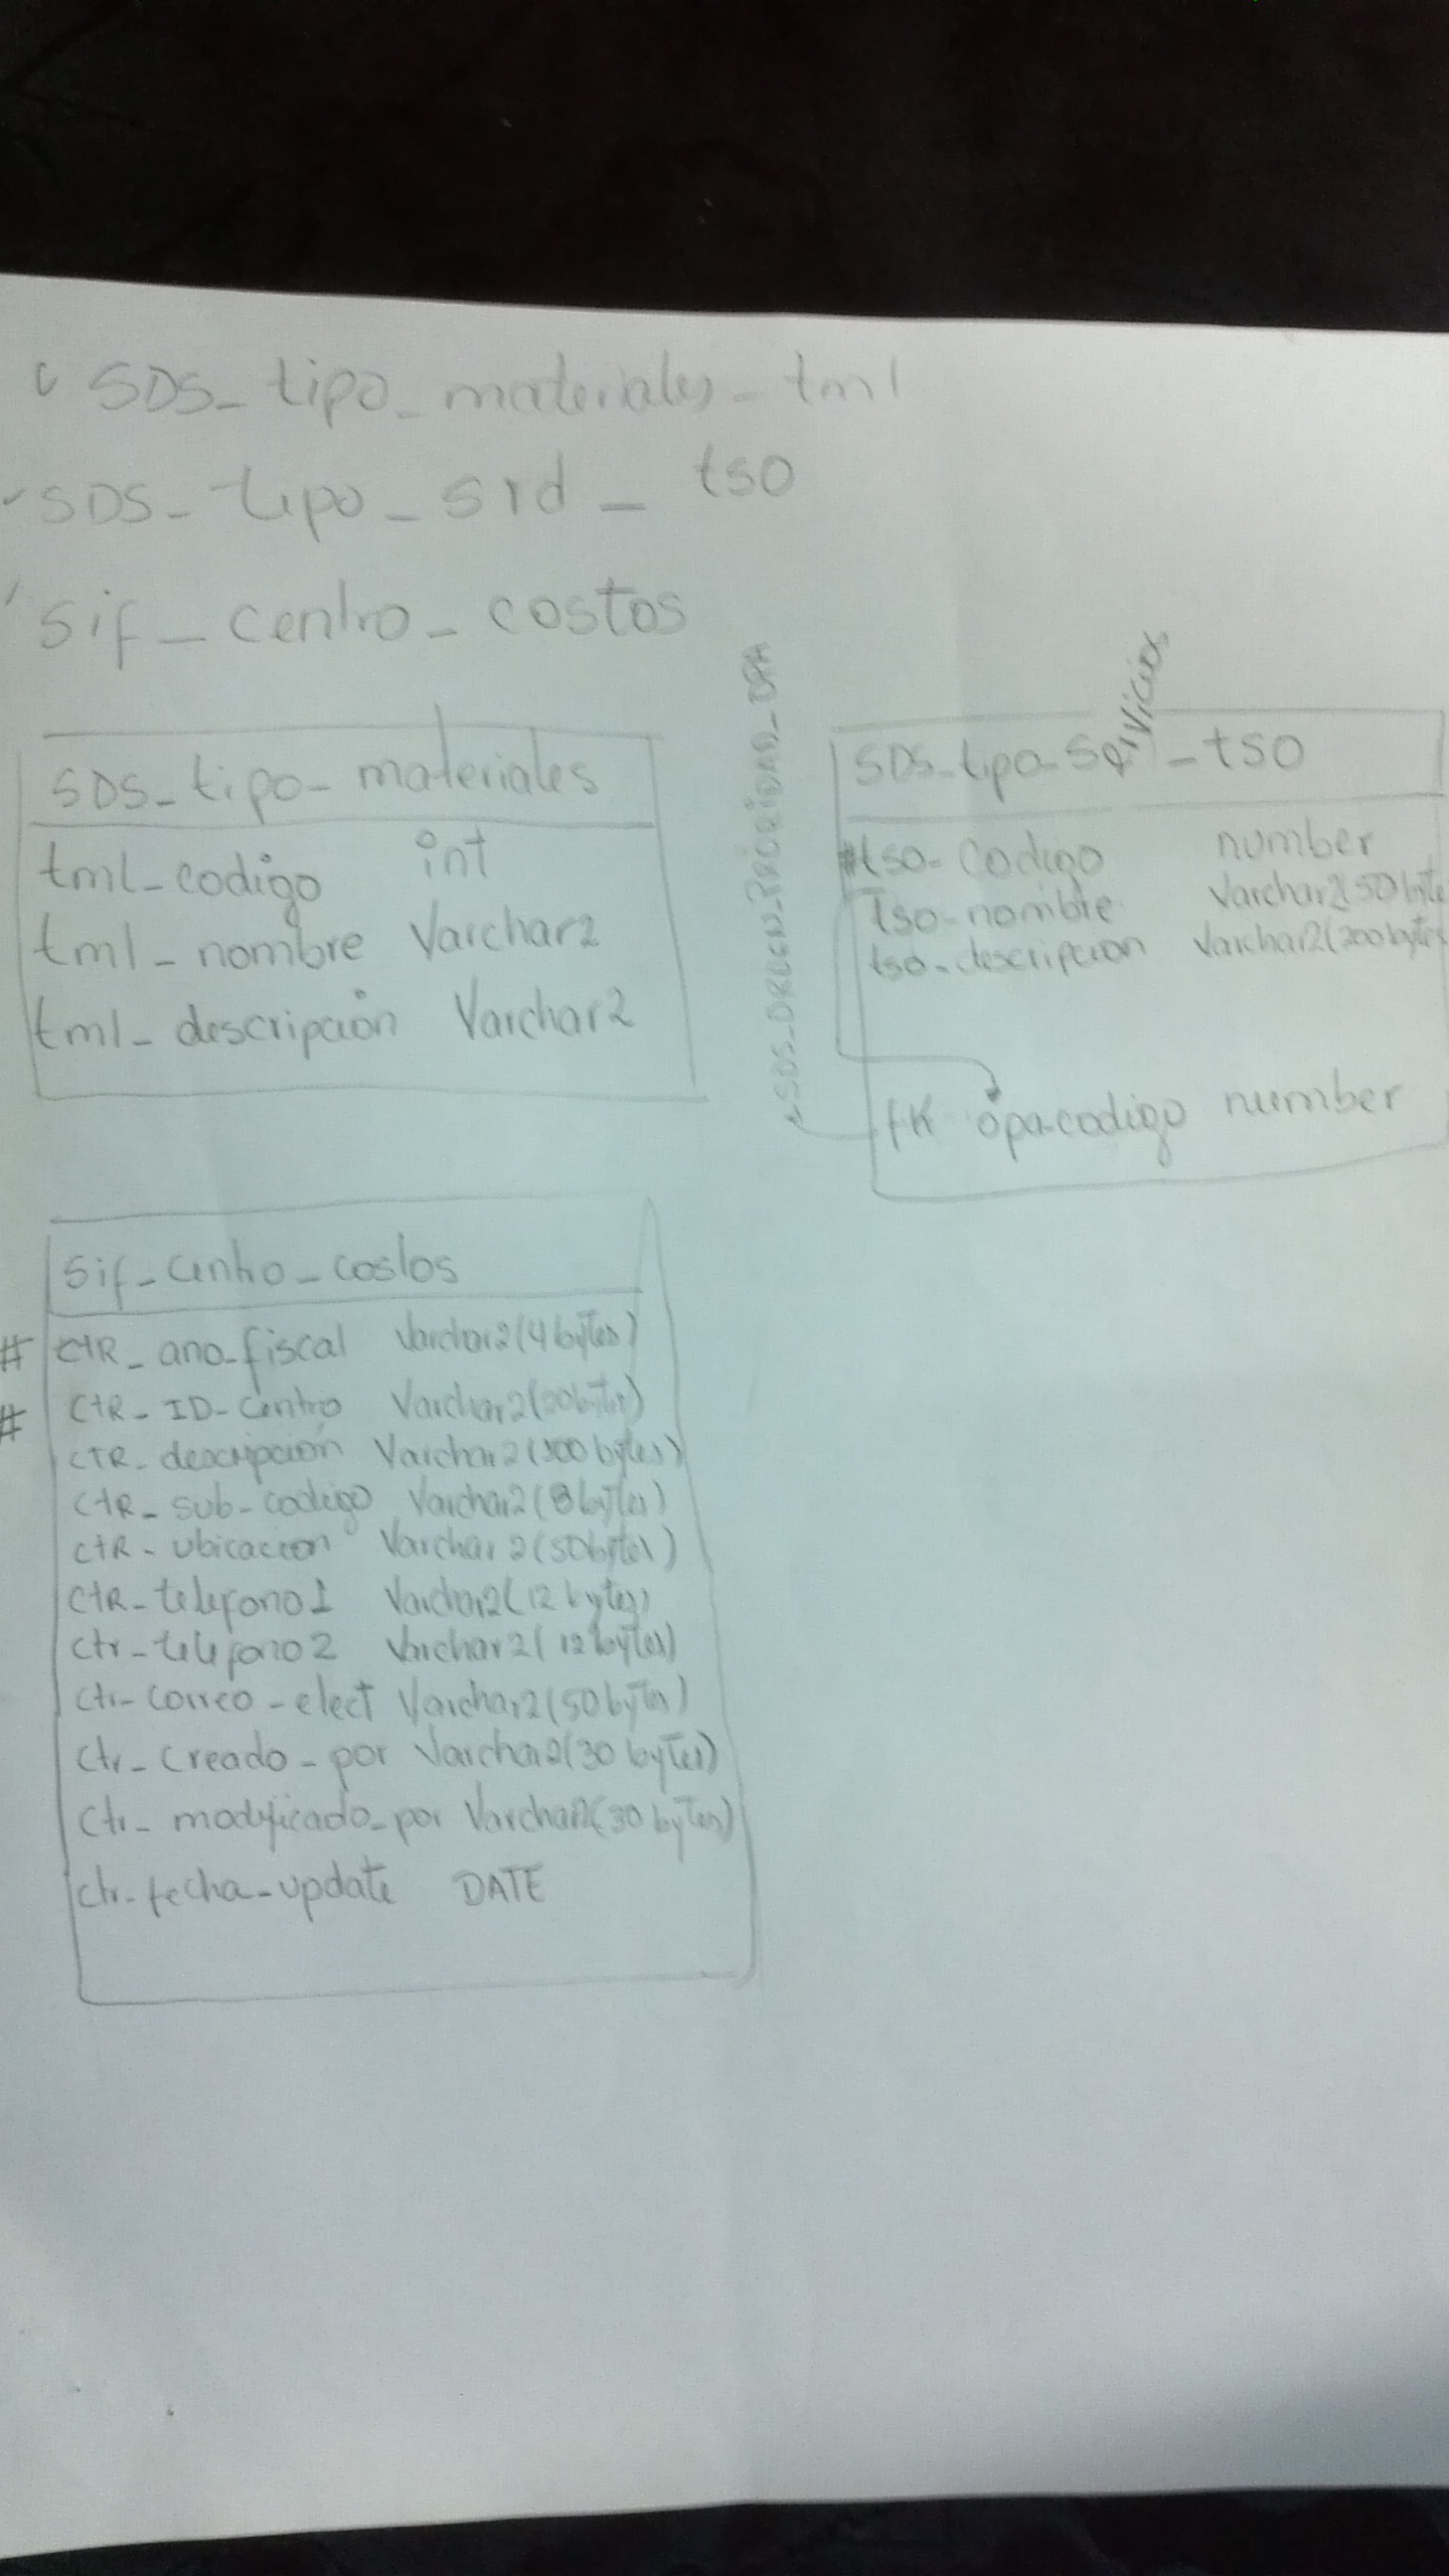 SDS_tipo_materiales_tml
SDS_tipo_srd_tso
Sif_centro_costos
SDS_tipo_materiales
tml_codigo int
tml_nombre Varchar2
tml_descripción Varchar2
SDS_ORDEN_PRIORIDAD_OPA
SDS_tipo_Servicios_tso
#tso_Codigo number
Tso_nombre Varchar2(50 byte
tso_descripcion Varchar2(200bytes
fK opa_codigo number
Sif_centro_costos
# CtR_ano_fiscal Varchar2(4 bytes)
# CtR_ID_Centro Varchar2(20bytes)
CTR_descripción Varchar2(300 bytes)
CtR_sub_codigo Varchar2(8 bytes)
CtR_ubicacion Varchar2(50bytes)
CtR_telefono1 Varchar2(12 bytes)
Ctr_telefono2 Varchar2(12 bytes)
Ctr_correo_elect Varchar2(50 bytes)
Ctr_creado_por Varchar2(30 bytes)
Ctr_modificado_por Varchar2(30 bytes)
Ctr_fecha_update DATE